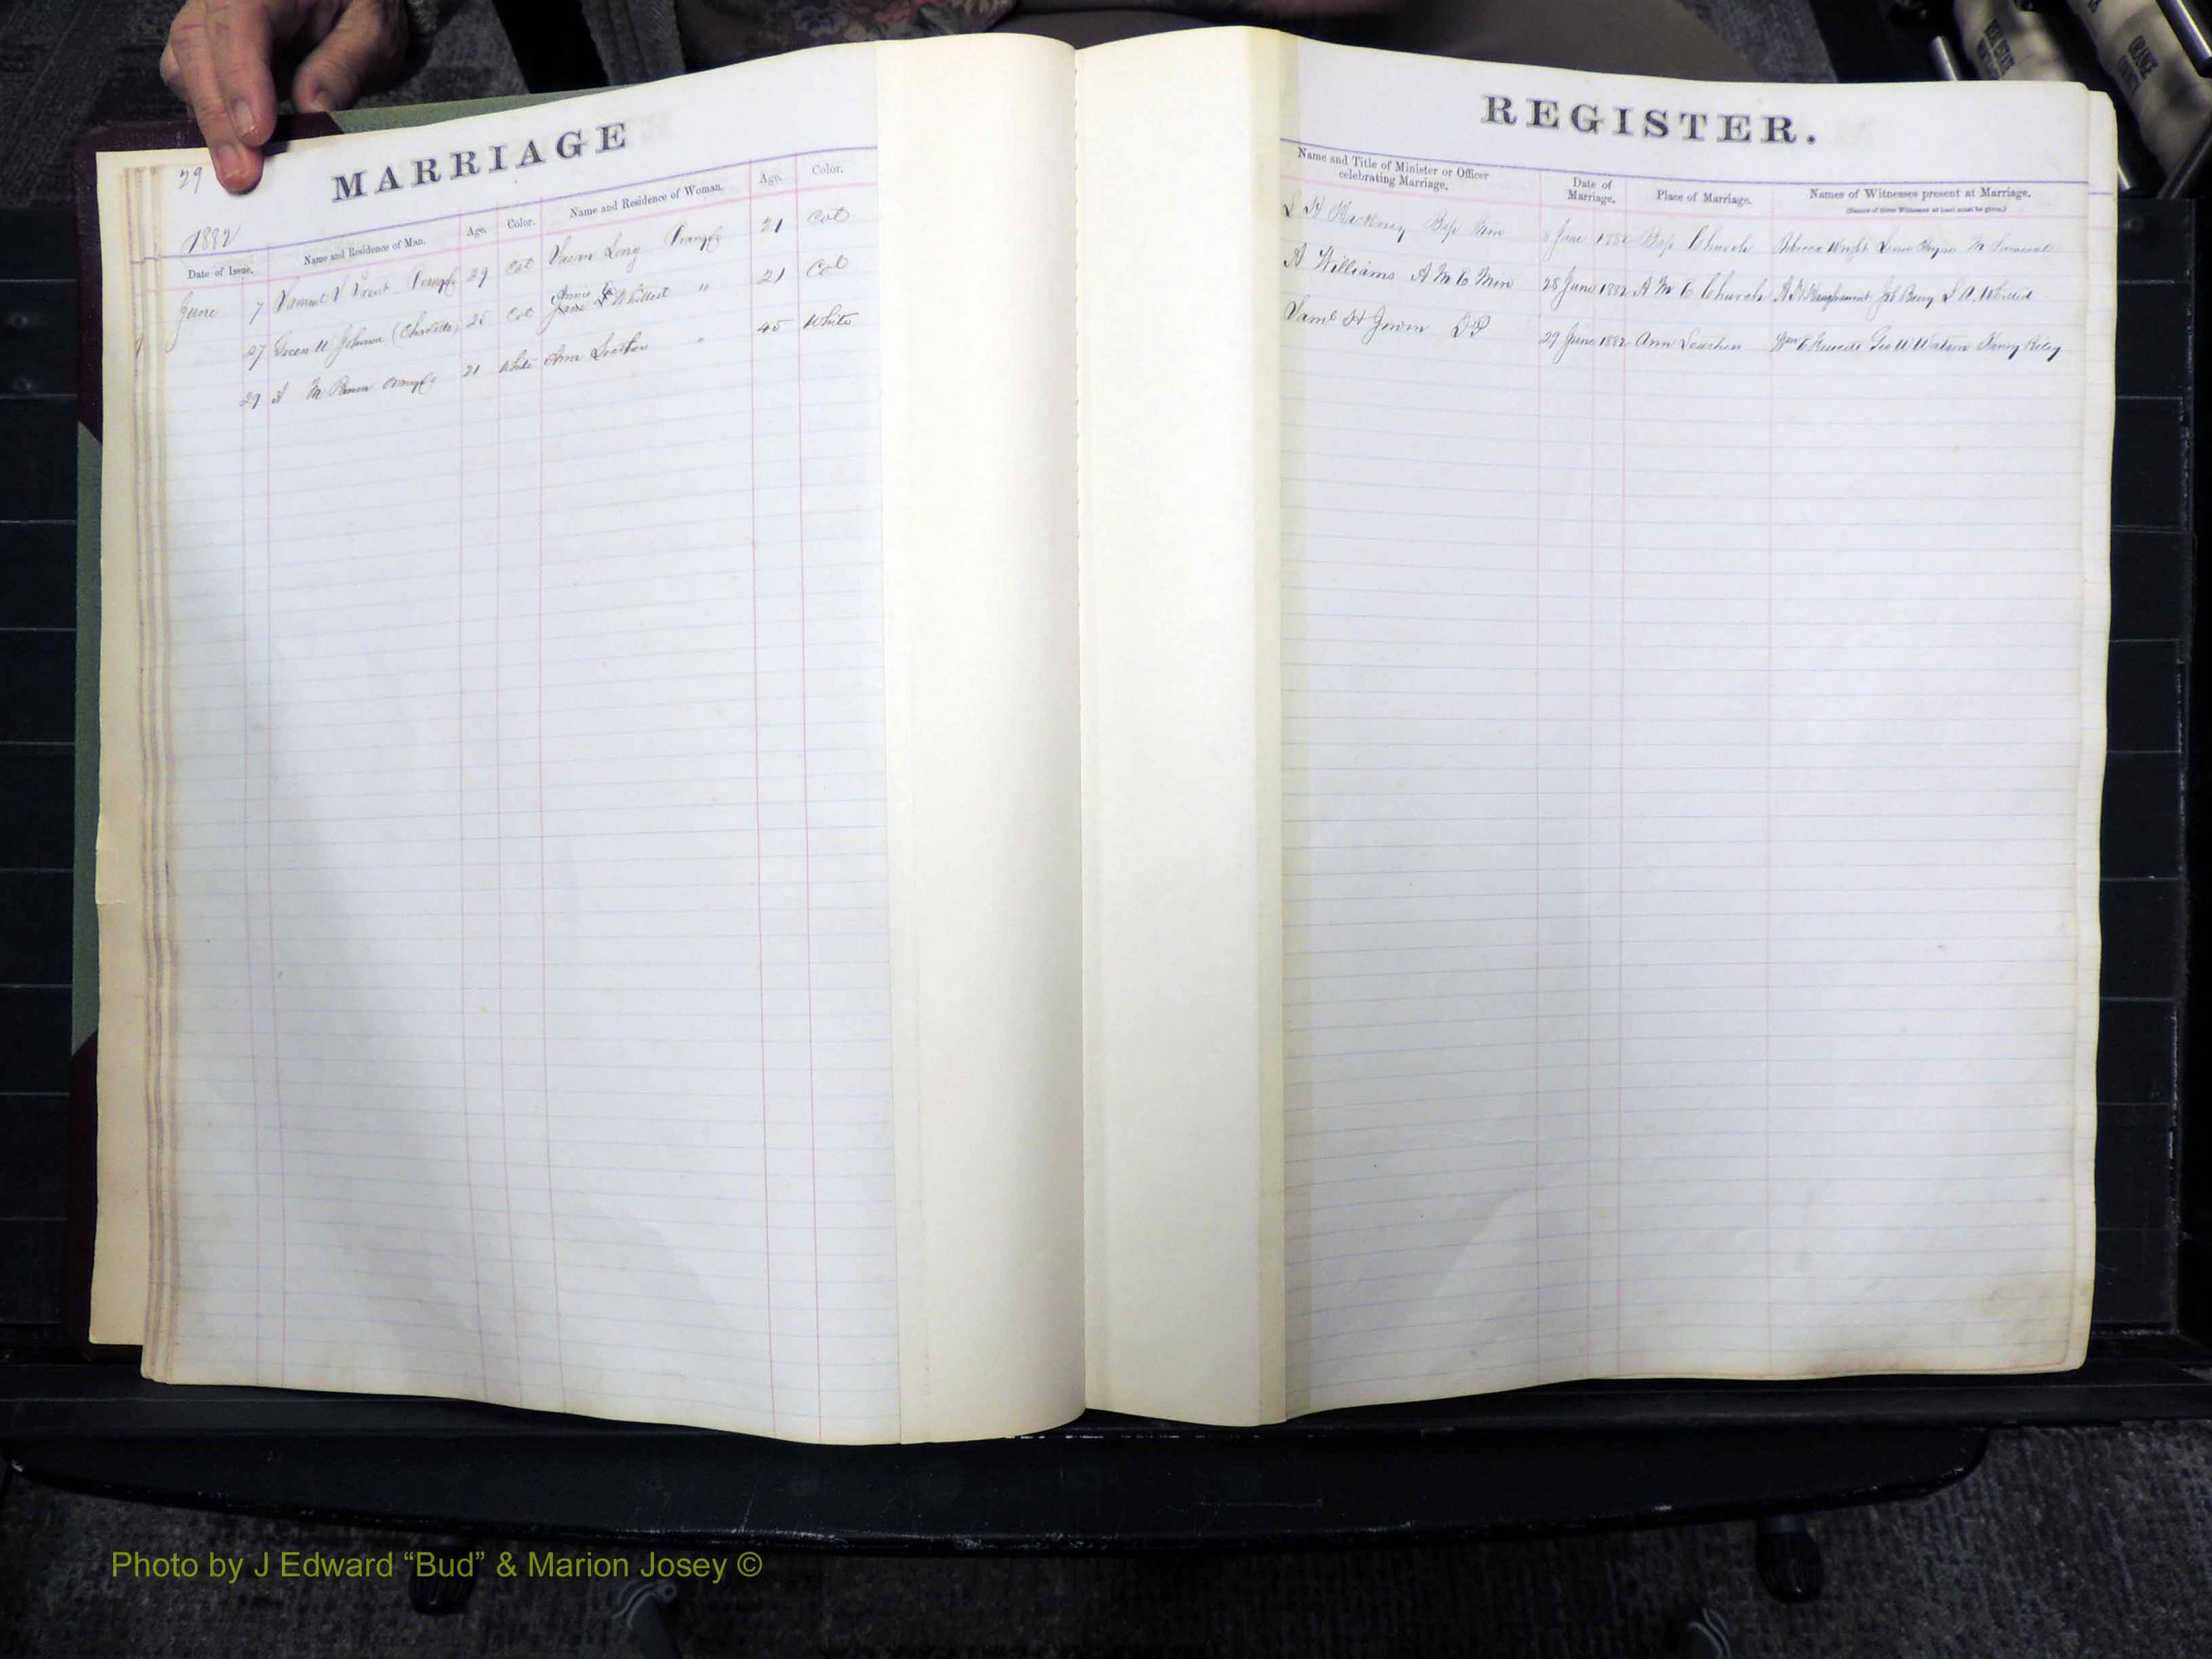 REAL ESTATE
ORANGE COUNTY
29
MARRIAGE
1882
Date of Issue.
Name and Residence of Man.
Age.
Color.
Name and Residence of Woman.
Age.
Color.
June 7 Samuel Orange Co 29 Col Susan Long Orange Co 21 Col
27 Green W Johnson 25 Col Annie Jane Whitted " 21 Col
29 A M Orange Co 21 White Ann " 45 White
REGISTER.
Name and Title of Minister or Officer celebrating Marriage.
Date of Marriage.
Place of Marriage.
Names of Witnesses present at Marriage.
(Names of three Witnesses at least must be given.)
L H Hackney Bap Min 8 June 1882 Bap Church Rebecca Wright
A Williams A M E Min 28 June 1882 A M E Church Berry L A Whitted
Saml H 29 June 1882 Ann Wm E Geo W Watson Nancy Riley
Photo by J Edward “Bud” & Marion Josey ©